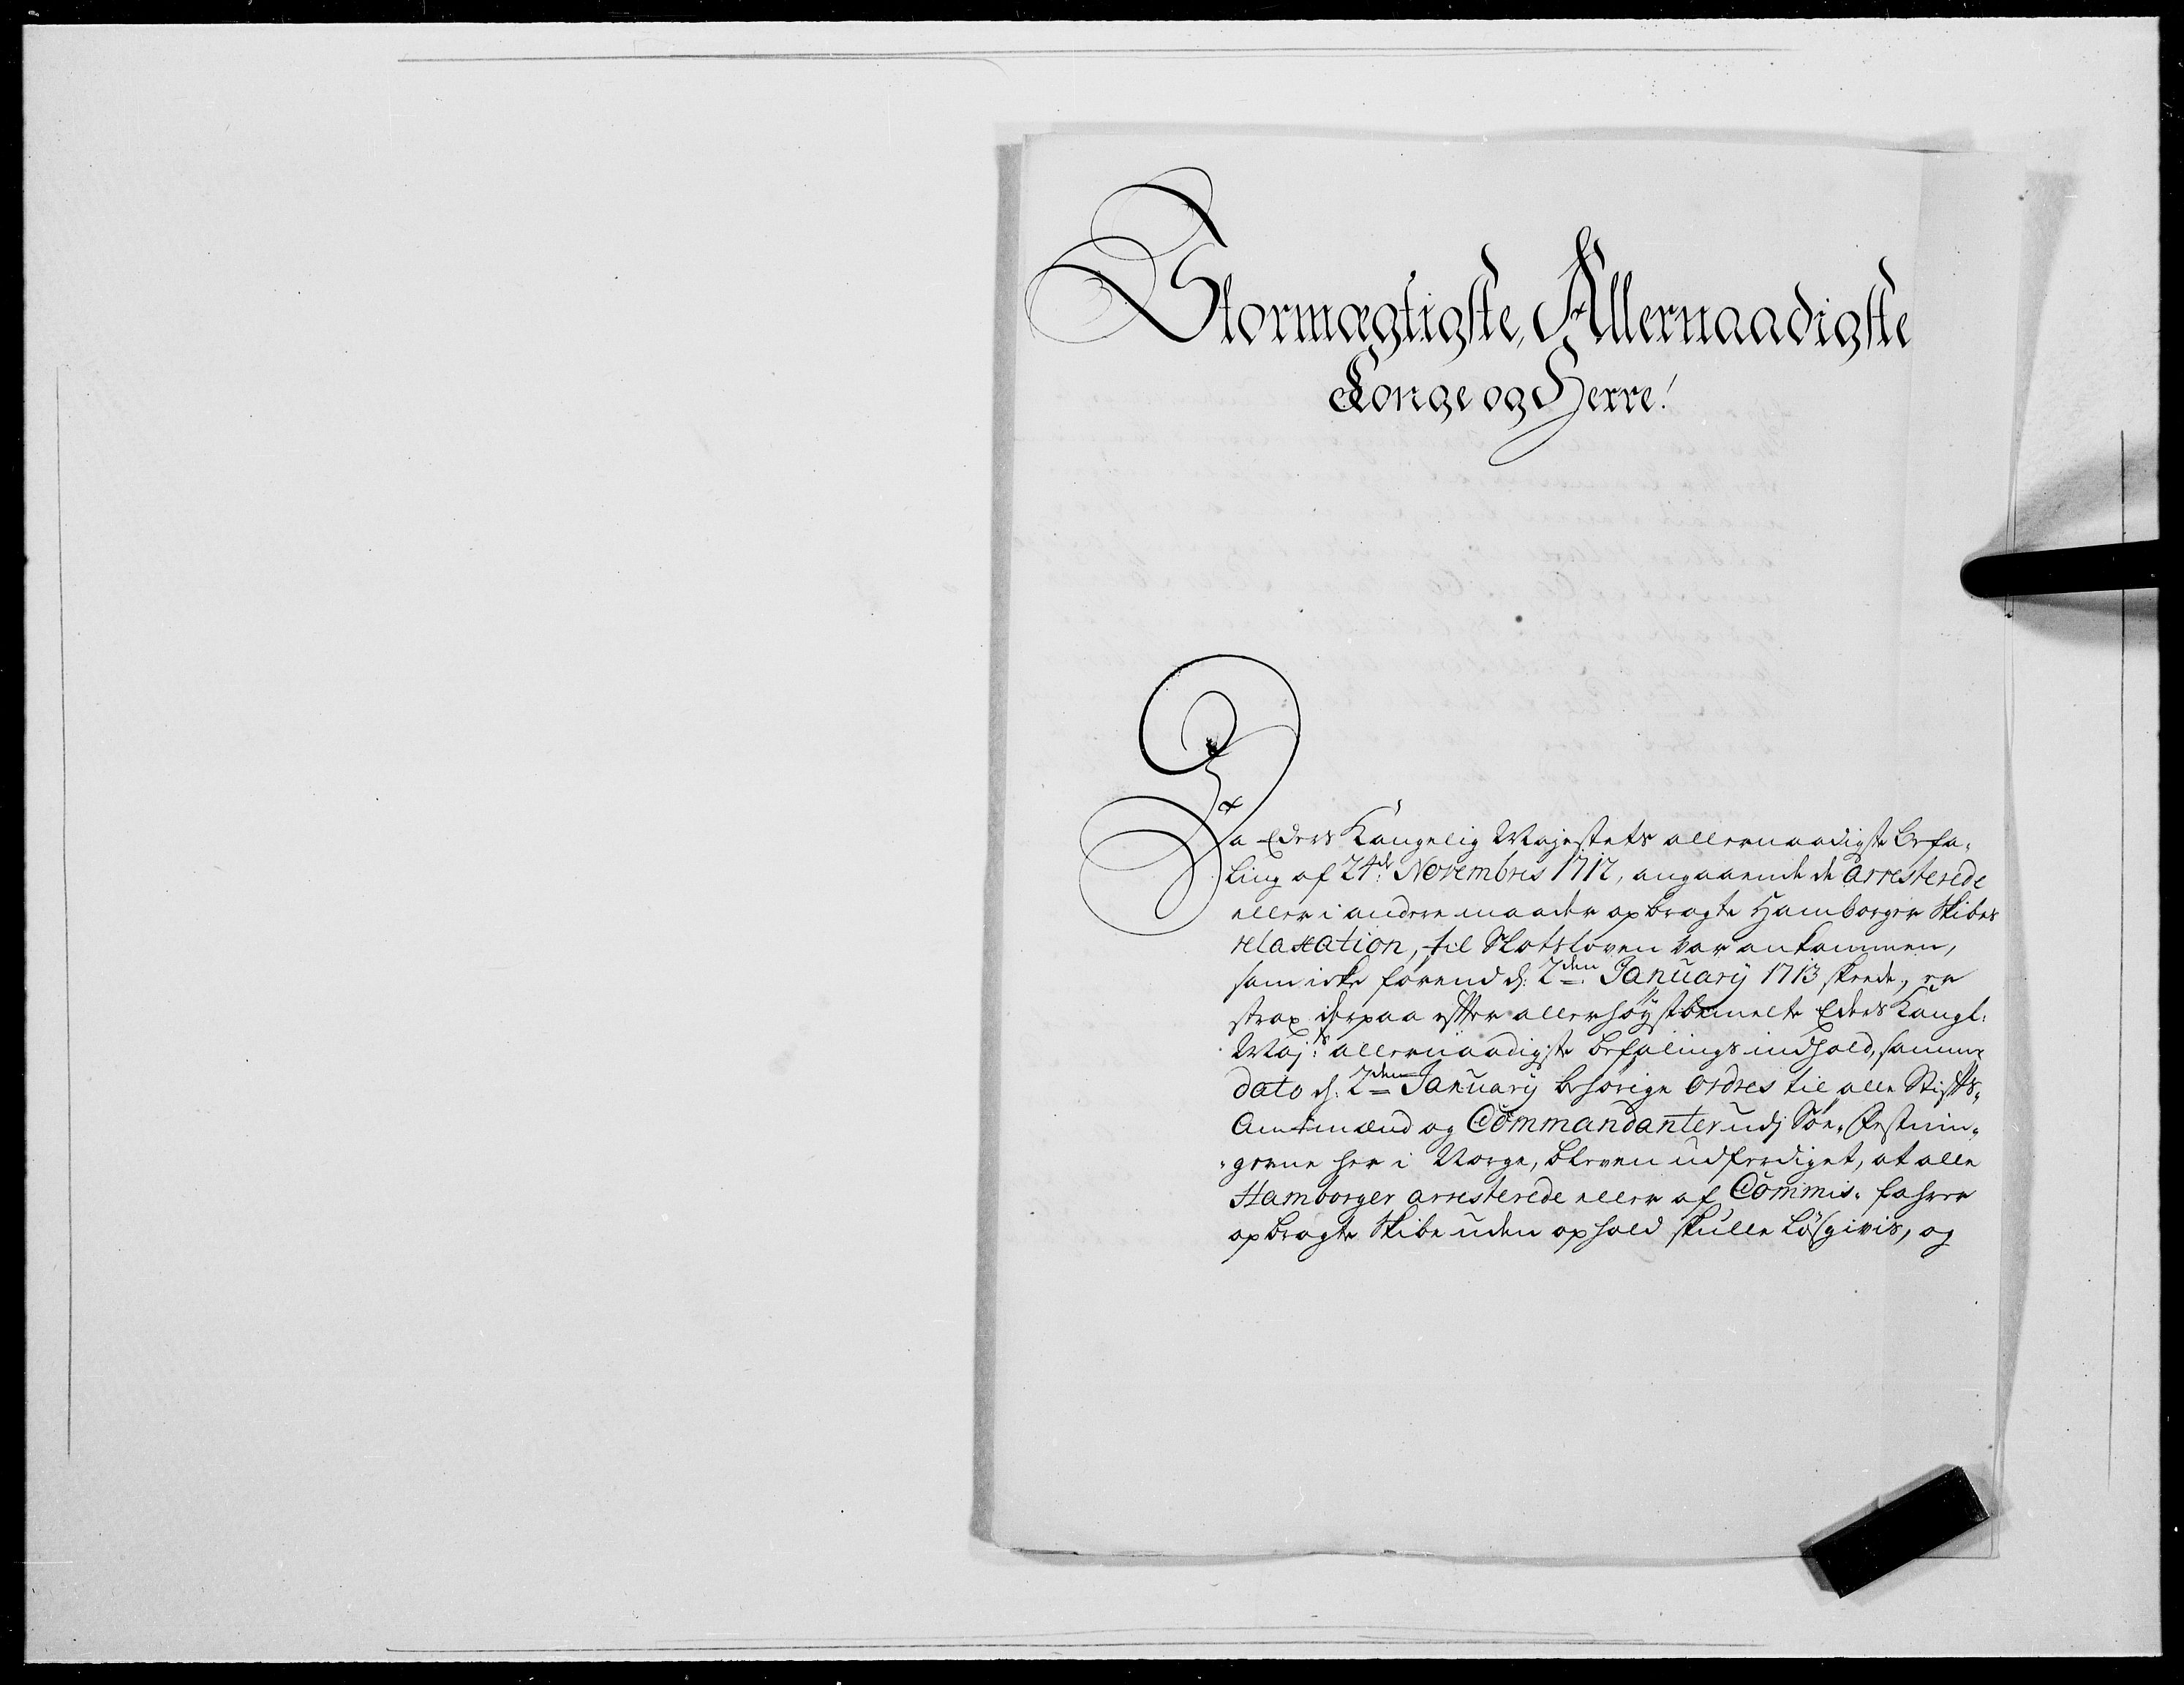 Stormægtigste, Allernaadigste
Konge og Herre!
Da Eders Kongelig Majestets allernaadigste Befa-
ling af 24de Novembris 1712, angaaende de arresterede
eller i andere maader opbragte Hamborger Skibes
relaxation, til Slotsloven var ankommen,
som icke førend d. 2den January 1713 skeede, er
strax derpaa efter allerhøystbemelte Eders Kongl:
Maj:s allernaadigste befalings indhold, samme
dato d. 2den January behørige Ordres til alle Stifts-
Amtmænd og Commandanter udj Søe-Festnin-
gerne her i Norge, bleven udferdiget, at alle
Hamborger arresterede eller af Commis-fahrer
opbragte Skibe uden ophold skulle Løsgivis, og